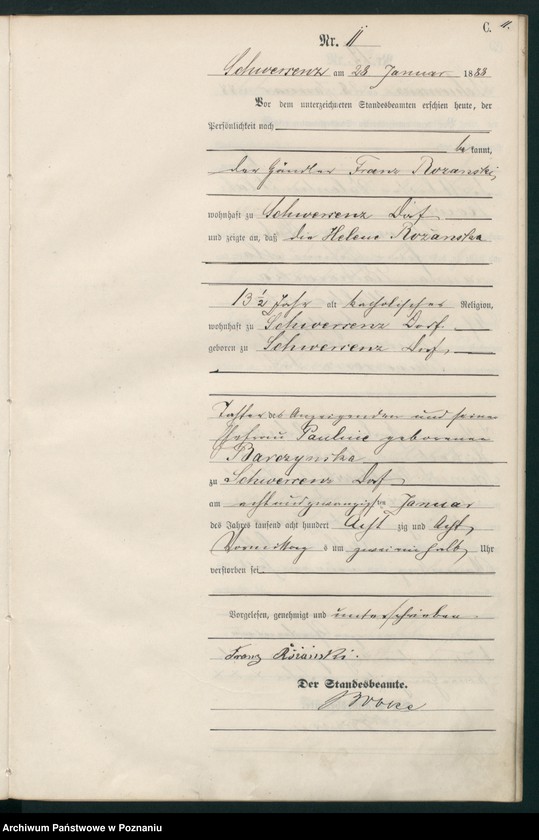 C. 11.
Nr. 11
Schwersenz am 28 Januar 1888
Vor dem unterzeichneten Standesbeamten erschien heute, der
Persönlichkeit nach
be kannt,
der Händler Franz Rozanski,
wohnhaft zu Schwersenz Dorf
und zeigte an, daß die Helene Rożanska
13 1/2 Jahr alt katholischer Religion,
wohnhaft zu Schwersenz Dorf
geboren zu Schwersenz Dorf,
Tochter des Anzeigenden und seiner
Ehefrau Pauline geborenen
Barczynska
zu Schwersenz Dorf
am achtundzwanzigsten Januar
des Jahres tausend acht hundert Acht zig und Acht,
Vormittag s um zwei ein halb, Uhr
verstorben sei.
Vorgelesen, genehmigt und unterschrieben.
Franz
Der Standesbeamte.
Archiwum Państwowe w Poznaniu